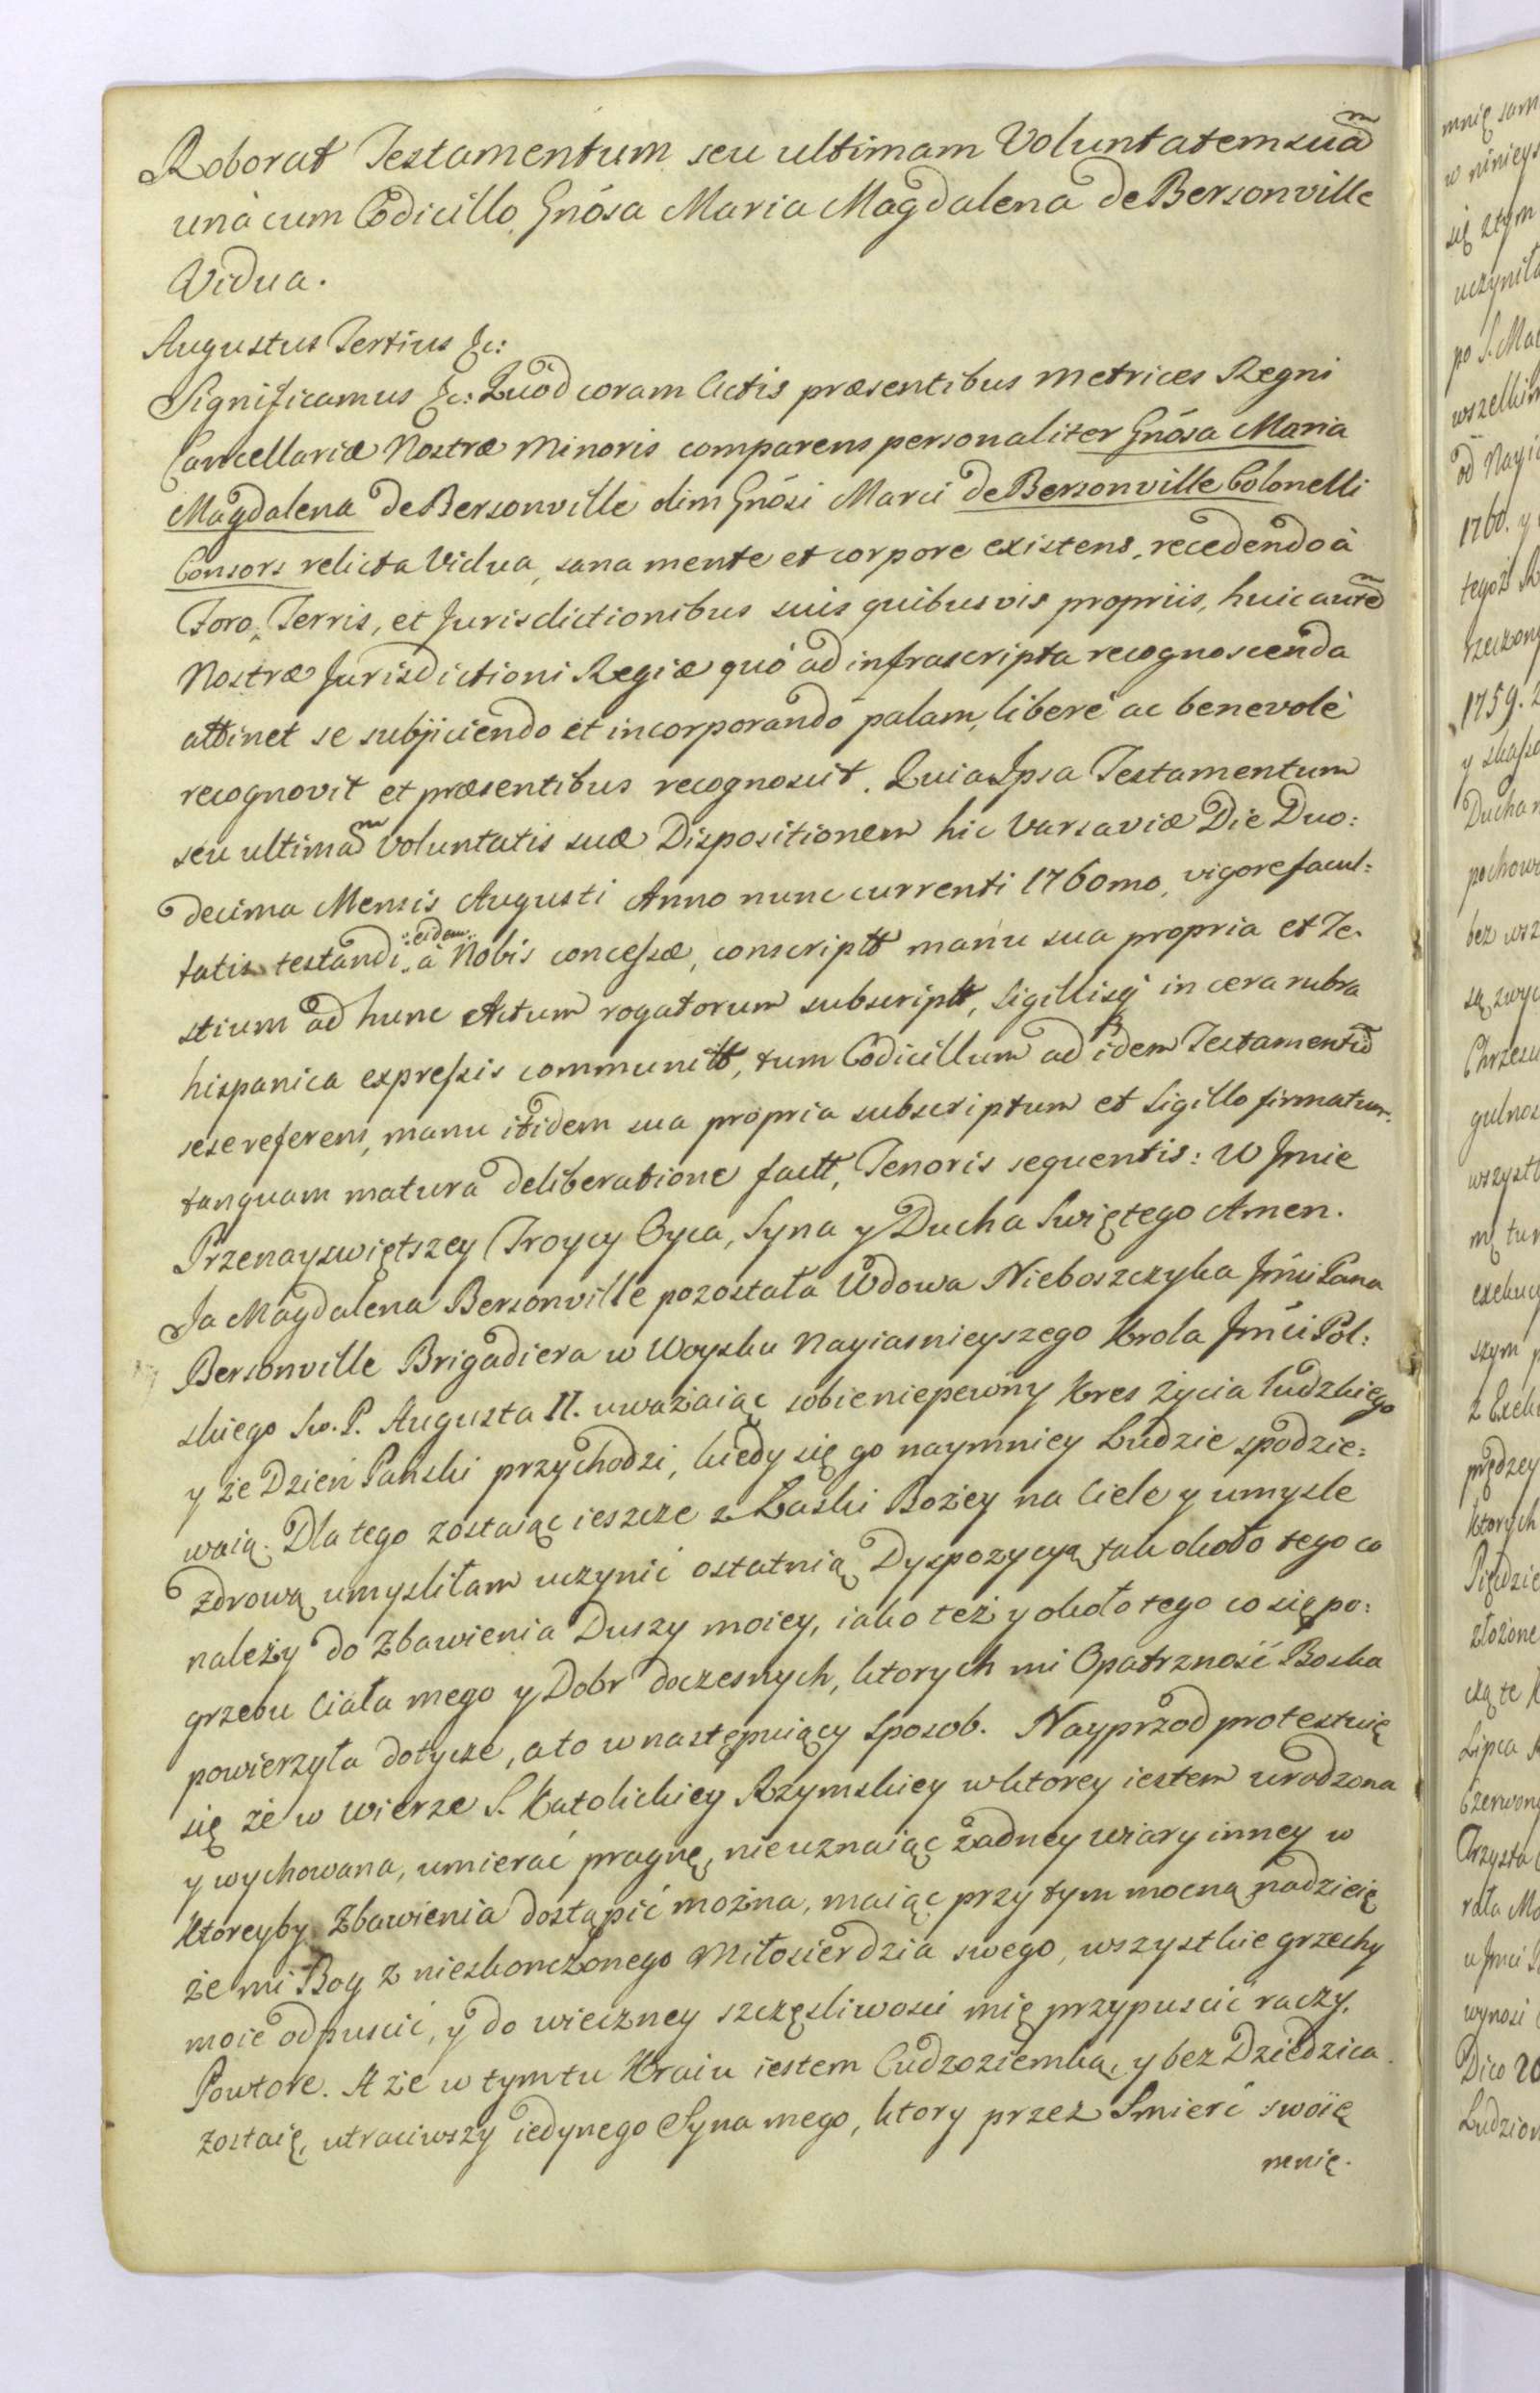 Roborat Testamentum seu ultimam Voluntatem suam
unà cum Codicillo Gnósa Maria Magdalena de Bersonville
Vidua.
Augustus Tertius &c:
Significamus &c: Quod coram Actis præsentibus Metrices Regni
Cancellariæ Nostræ Minoris comparens personaliter Gnósa Maria
Magdalena de Bersonville olim Gnósi Marci de Bersonville Colonelli
Consors relicta Vidua, sana mente et corpore existens, recedendo à
Foro, Terris, et Jurisdictionibus suis quibusvis propriis, huic autem
Nostræ Jurisdictioni Regiæ quó ad infrascripta recognoscenda
attinet se subjiciendo et incorporando palam, liberè ac benevolè
recognovit et præsentibus recognoscit. Quia Ipsa Testamentum
seu ultimam Voluntatis suæ Dispositionem hic Varsaviæ Die Duo:
decima Mensis Augusti Anno nunc currenti 1760mo, vigore facul:
tatis testandi eidem à Nobis concessæ, conscriptt manu sua propria et Te.
stium ad hunc Actum rogatorum subscriptt, Sigillisq in cera rubra
hispanica expressis communitt, tum Codicillum ad idem Testamentum
sese referens, manu itidem sua propria subscriptum et Sigillo firmatum.
tanquam matura deliberatione factt, Tenoris sequentis: W Jmie
Przenayswiętszey Troycy Oyca, Syna y Ducha Swiętego Amen.
Ja Magdalena Bersonville pozostała Wdowa Nieboszczyka Jmći Pana
Bersonville Brigadiera w Woysku Nayiasnieyszego Krola Jmći Pol:
skiego Sw. P. Augusta II. uważaiąc sobie niepewny Kres życia ludzkiego
y że Dzień Panski przychodzi, kiedy się go naymniey Ludzie spodzie:
waią. Dla tego zostaiąc ieszcze z Łaski Bożey na Ciele y umysle
zdrową umysliłam uczynić ostatnią Dyspozycyą tak około tego co
należy do Zbawienia Duszy moiey, iako też y około tego co się po:
grzebu Ciała mego y Dobr doczesnych, ktorych mi Opatrzność Boska
powierzyła dotycze, a to w następuiący sposob. Nayprzod protestuię
się że w wierze S. Katolickiey Rzymskiey w ktorey iestem urodzona
y wychowana, umierać pragnę, nieuznaiąc żadney wiary inney w
ktoreyby Zbawienia dostąpić można, maiąc przy tym mocną nadzieię
że mi Bog z nieskonczonego Miłosierdzia swego, wszystkie grzechy
moie odpuscić, y do wieczney szczęsliwosci mię przypuscić raczy.
Powtore. A że w tym tu Kraiu iestem Cudzoziemką, y bez Dziedzica
zostaię, utraciwszy iedynego Syna mego, ktory przez Smierć swoię
mnię
mnię
w ninieys
się ztym
uczyniła
wszelki
od Nayia
1760. y
tegoż
1759.
bez wsz
są zwy
Piędzie
złożone
Lipca
wynosi
Dico 20